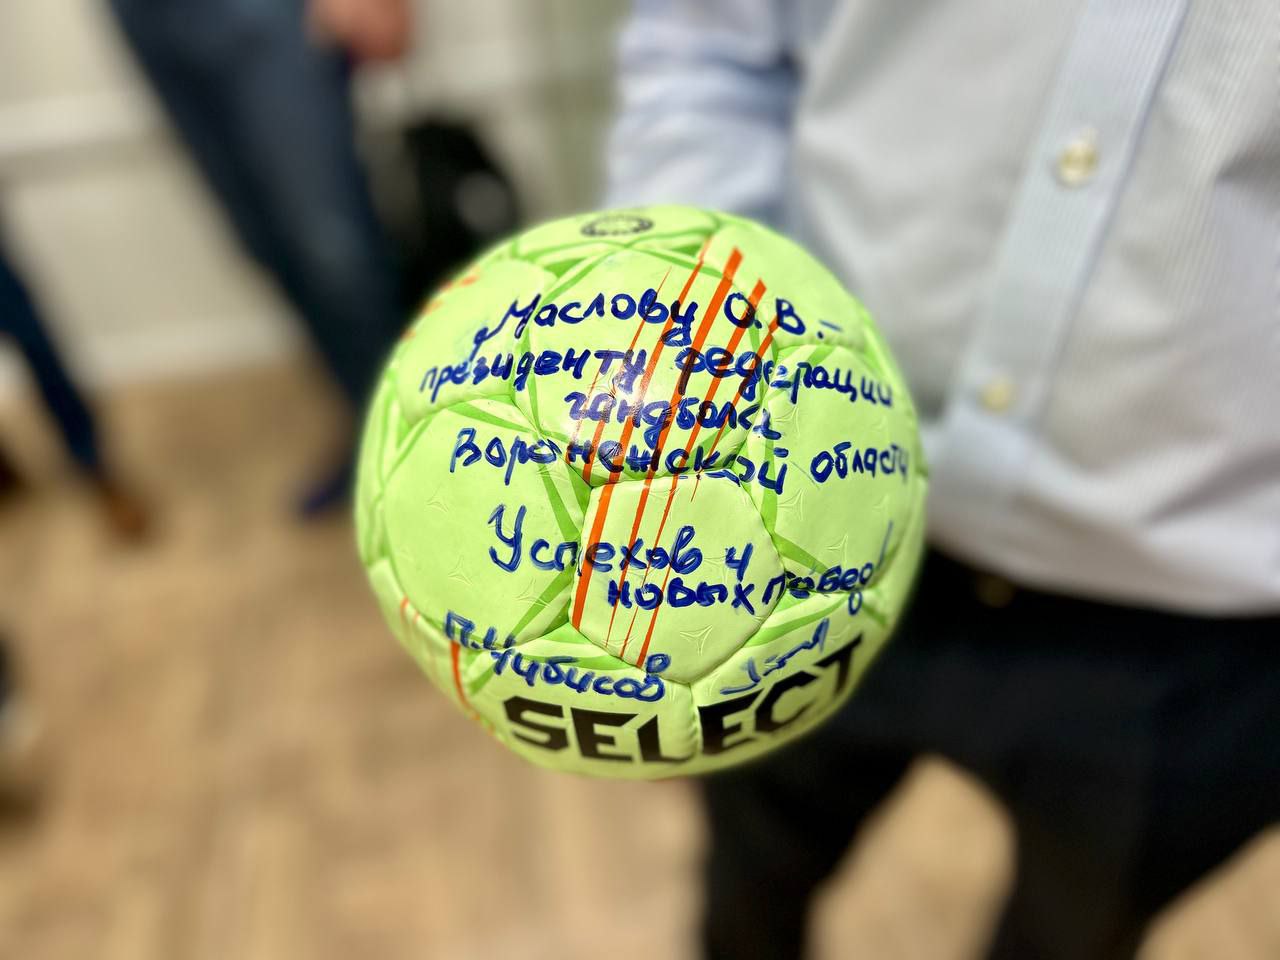 Маслову О.В. –
президенту федерации
гандбола
Воронежской области
Успехов и
новых побед!
П.Чибисов
SELECT